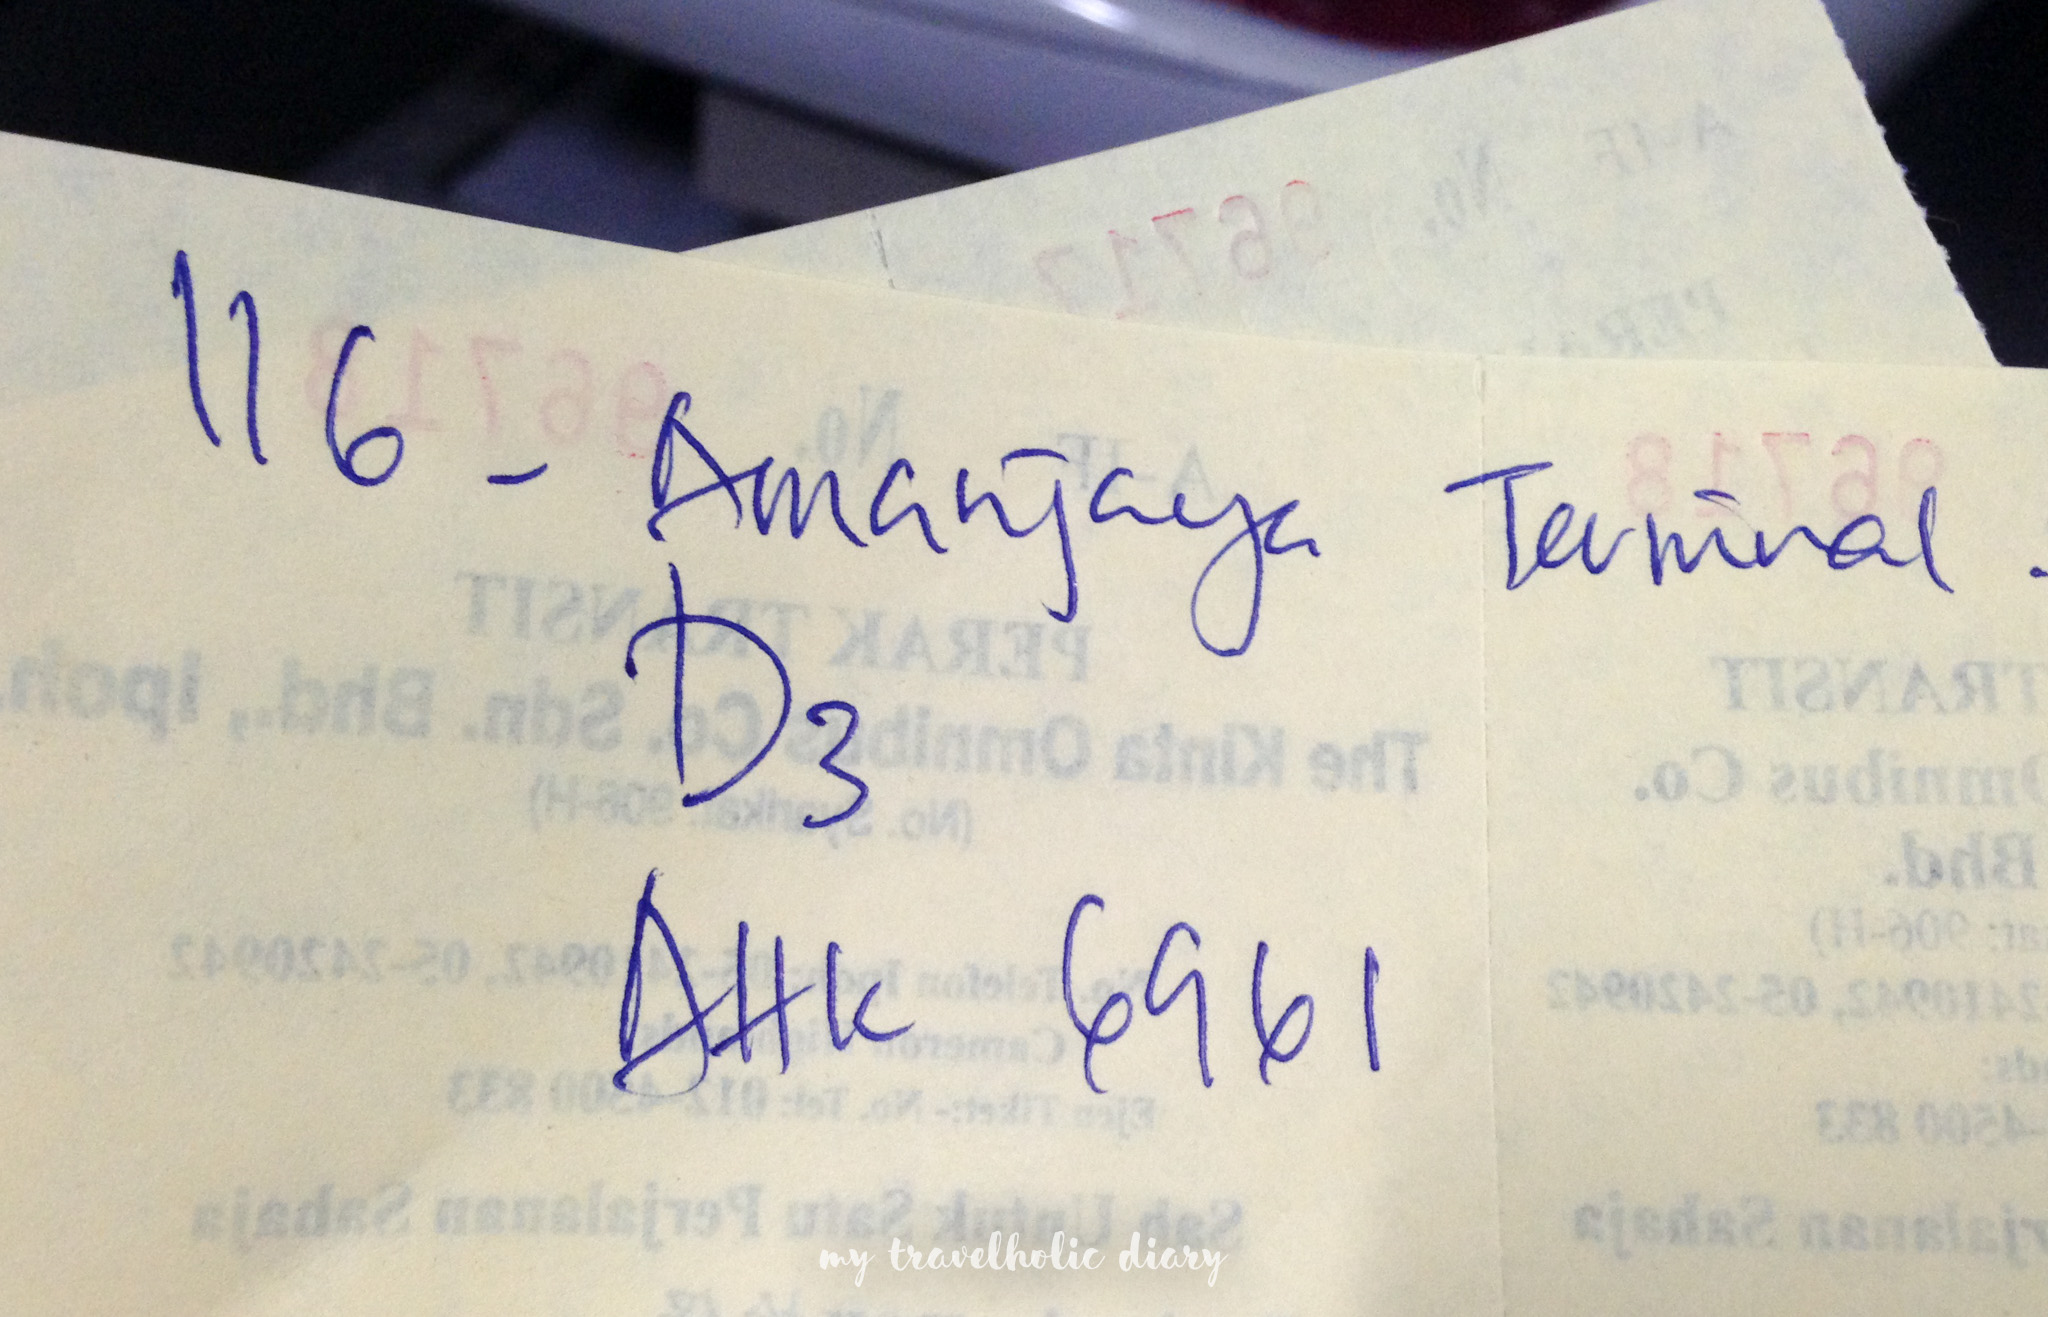 96717
A-1F No.
116 - Amanjaya Terminal.
D3
AHK 6961
A-1F No. 96718
96718
PERAK TRANSIT
The Kinta Omnibus Co. Sdn. Bhd., Ipoh.
(No. Syarikat 906-H)
No. Telefon Ipoh: 05-2410942, 05-2420942
Cameron Highlands
Ejen Tiket:- No. Tel: 012-4500 833
Sah Untuk Satu Perjalanan Sahaja
TRANSIT
Omnibus Co.
Bhd.
906-H)
2410942, 05-2420942
-4500 833
Sahaja
my travelholic diary